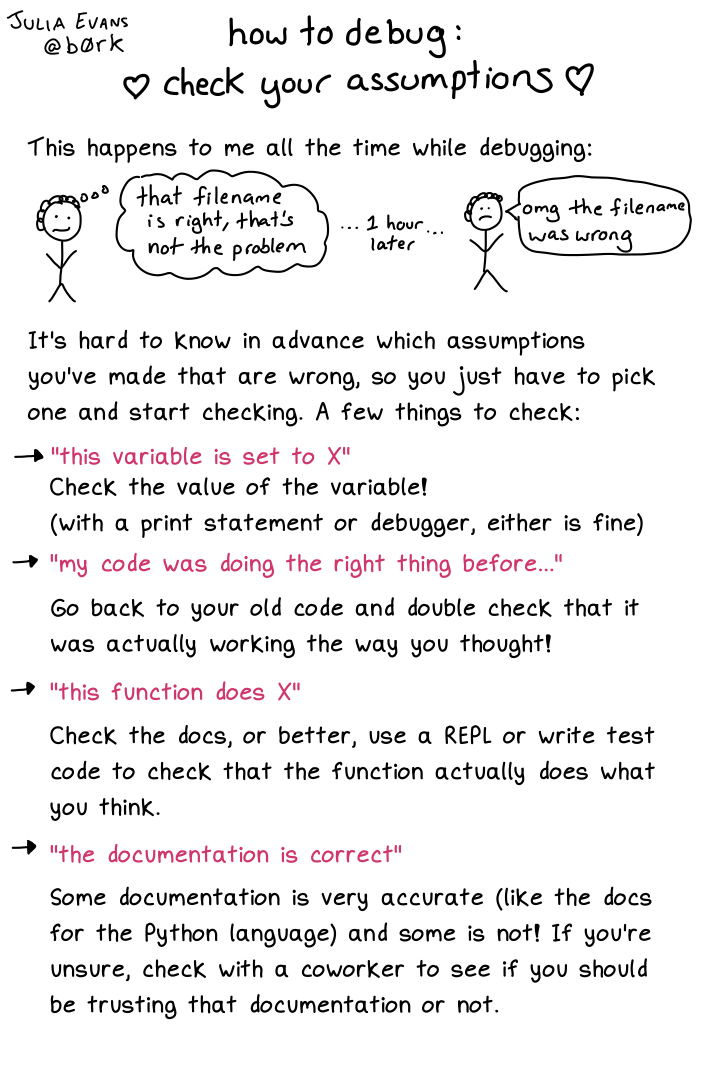 JULIA EVANS
@børk
how to debug:
♡ check your assumptions ♡
This happens to me all the time while debugging:
that filename
is right, that's
not the problem
... 1 hour...
later
omg the filename
was wrong
It's hard to know in advance which assumptions
you've made that are wrong, so you just have to pick
one and start checking. A few things to check:
→ "this variable is set to X"
Check the value of the variable!
(with a print statement or debugger, either is fine)
→ "my code was doing the right thing before..."
Go back to your old code and double check that it
was actually working the way you thought!
→ "this function does X"
Check the docs, or better, use a REPL or write test
code to check that the function actually does what
you think.
→ "the documentation is correct"
Some documentation is very accurate (like the docs
for the Python language) and some is not! If you're
unsure, check with a coworker to see if you should
be trusting that documentation or not.